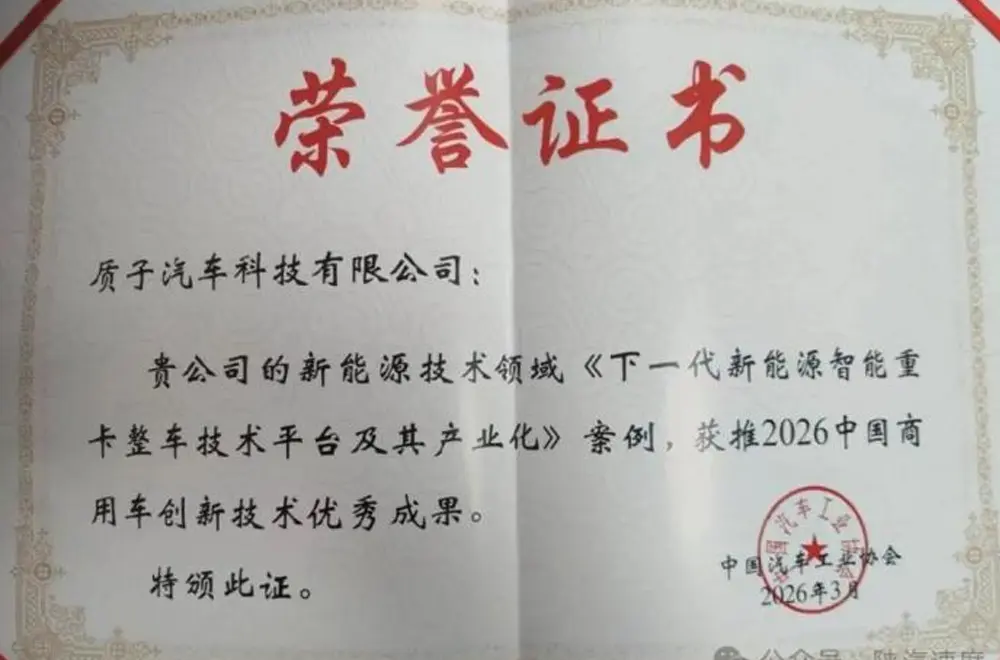 荣誉证书
质子汽车科技有限公司：
贵公司的新能源技术领域《下一代新能源智能重
卡整车技术平台及其产业化》案例，获推2026中国商
用车创新技术优秀成果。
特颁此证。
中国汽车工业协会
中国汽车工业协会
2026年3月